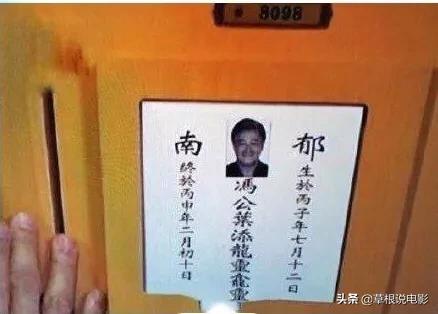 # 8098
郁
生於丙子年七月十二日
馮公葉添龍靈龕靈
南
終於丙申年二月初十日
头条 @草根说电影